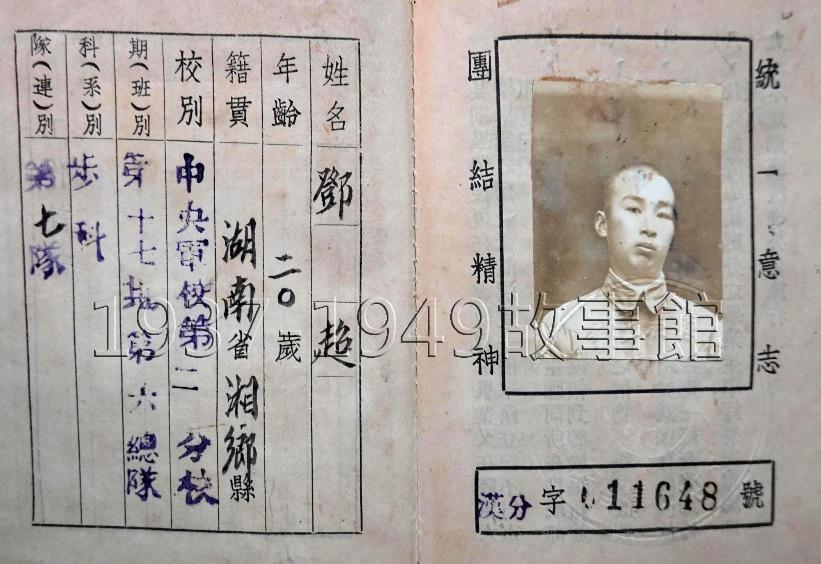 統一意志
團結精神
漢分字011648號
姓名 鄧超
年齡 二〇歲
籍貫 湖南省湘鄉縣
校別 中央軍校第二分校
期(班)別 第十七期第六總隊
科(系)別 步科
隊(連)別 第七隊
1937-1949故事館